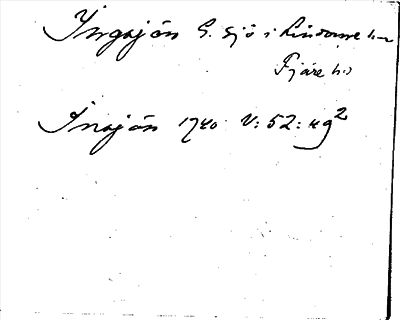 Ingsjön S. sjö i Lindome sn
Fjäre hd
Insjön 1740 V: 52: 49²